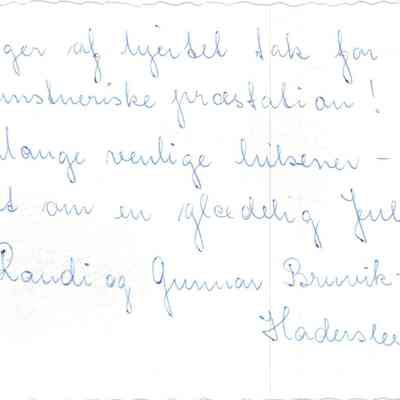 ger af hjertet tak for
unstneriske præstation!
Mange venlige hilsener -
t om en glædelig Jul
Randi og Gunnar Brunvik-
Hadersle